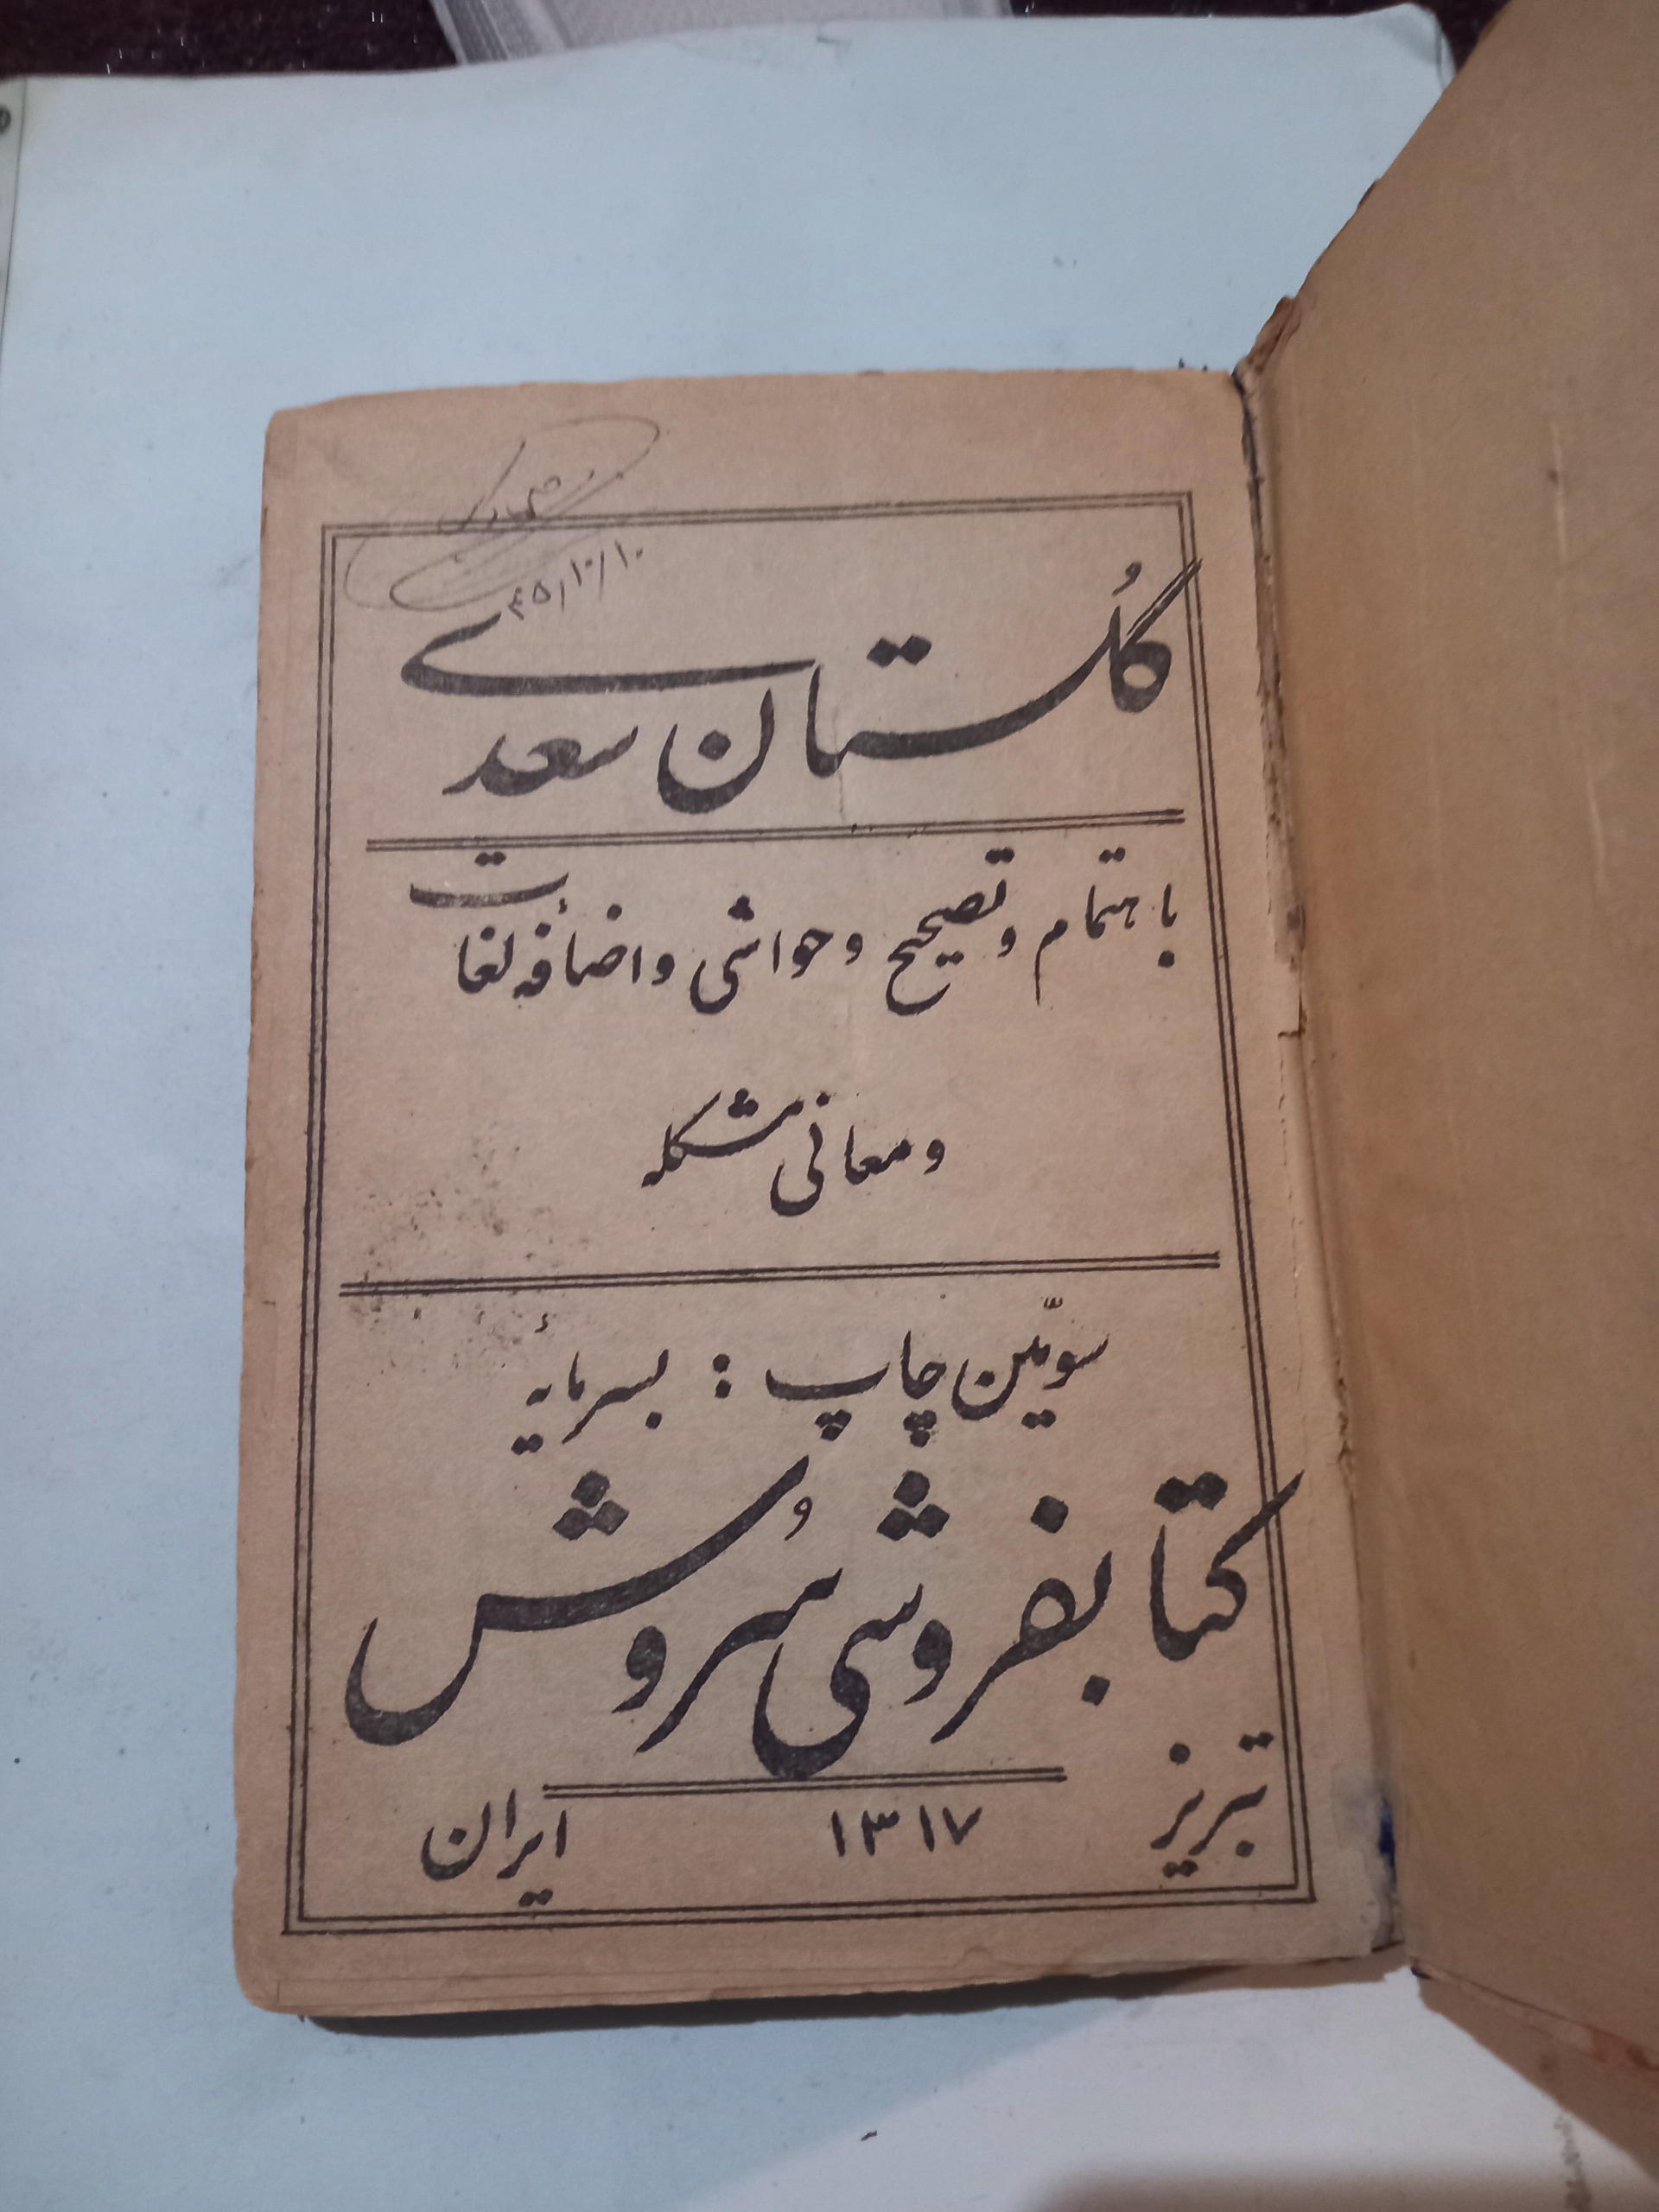 ۴۵/۱۰/۱۰
گُلستان سعدی
باهتمام و تصحیح و حواشی و اضافهٔ لغات
و معانی مشکله
سوّمین چاپ : بسرمایهٔ
کتابفروشی سُروش
تبریز ۱۳۱۷ ایران